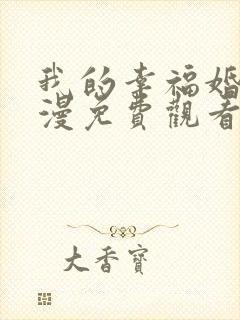 我的幸福婚
漫免費觀看
大香寶